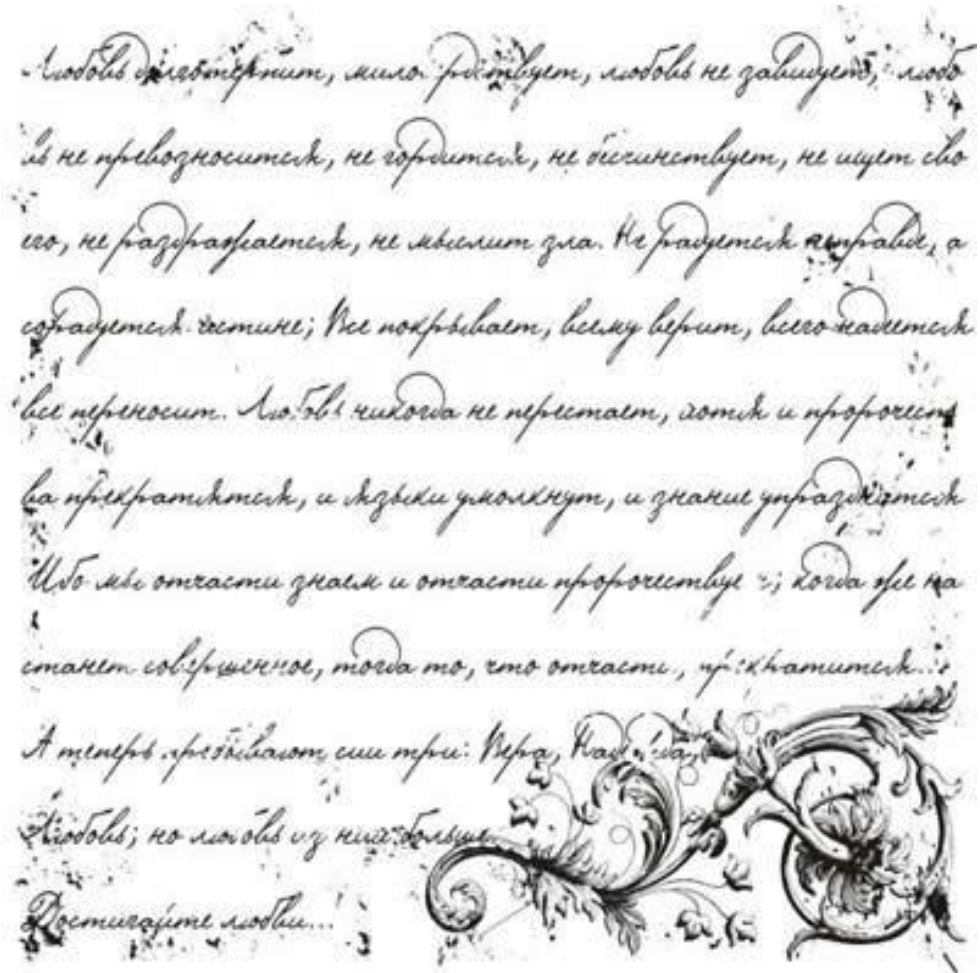 Любовь долготерпит, милосердствует, любовь не завидует, любо
вь не превозносится, не гордится, не бесчинствует, не ищет сво
его, не раздражается, не мыслит зла. Не радуется неправде, а
сорадуется истине; Все покрывает, всему верит, всего надеется
все переносит. Любовь никогда не перестает, хотя и пророчест
ва прекратятся, и языки умолкнут, и знание упразднится
Ибо мы отчасти знаем и отчасти пророчествуем; когда же на
станет совершенное, тогда то, что отчасти, прекратится...
А теперь пребывают сии три: Вера, Надежда,
Любовь; но любовь из них больше
Достигайте любви...